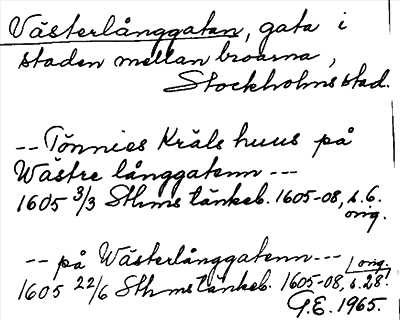 Västerlånggatan, gata i
staden mellan broarna,
Stockholms stad.
-- Tönnies Kräls huus på
Wästre långgatenn ---
1605 3/3 Sthms tänkeb. 1605-08, s. 6.
orig.
-- på Wästerlånggatenn --- orig.
1605 22/6 Sthms tänkeb. 1605-08, s. 28!
G.E. 1965.